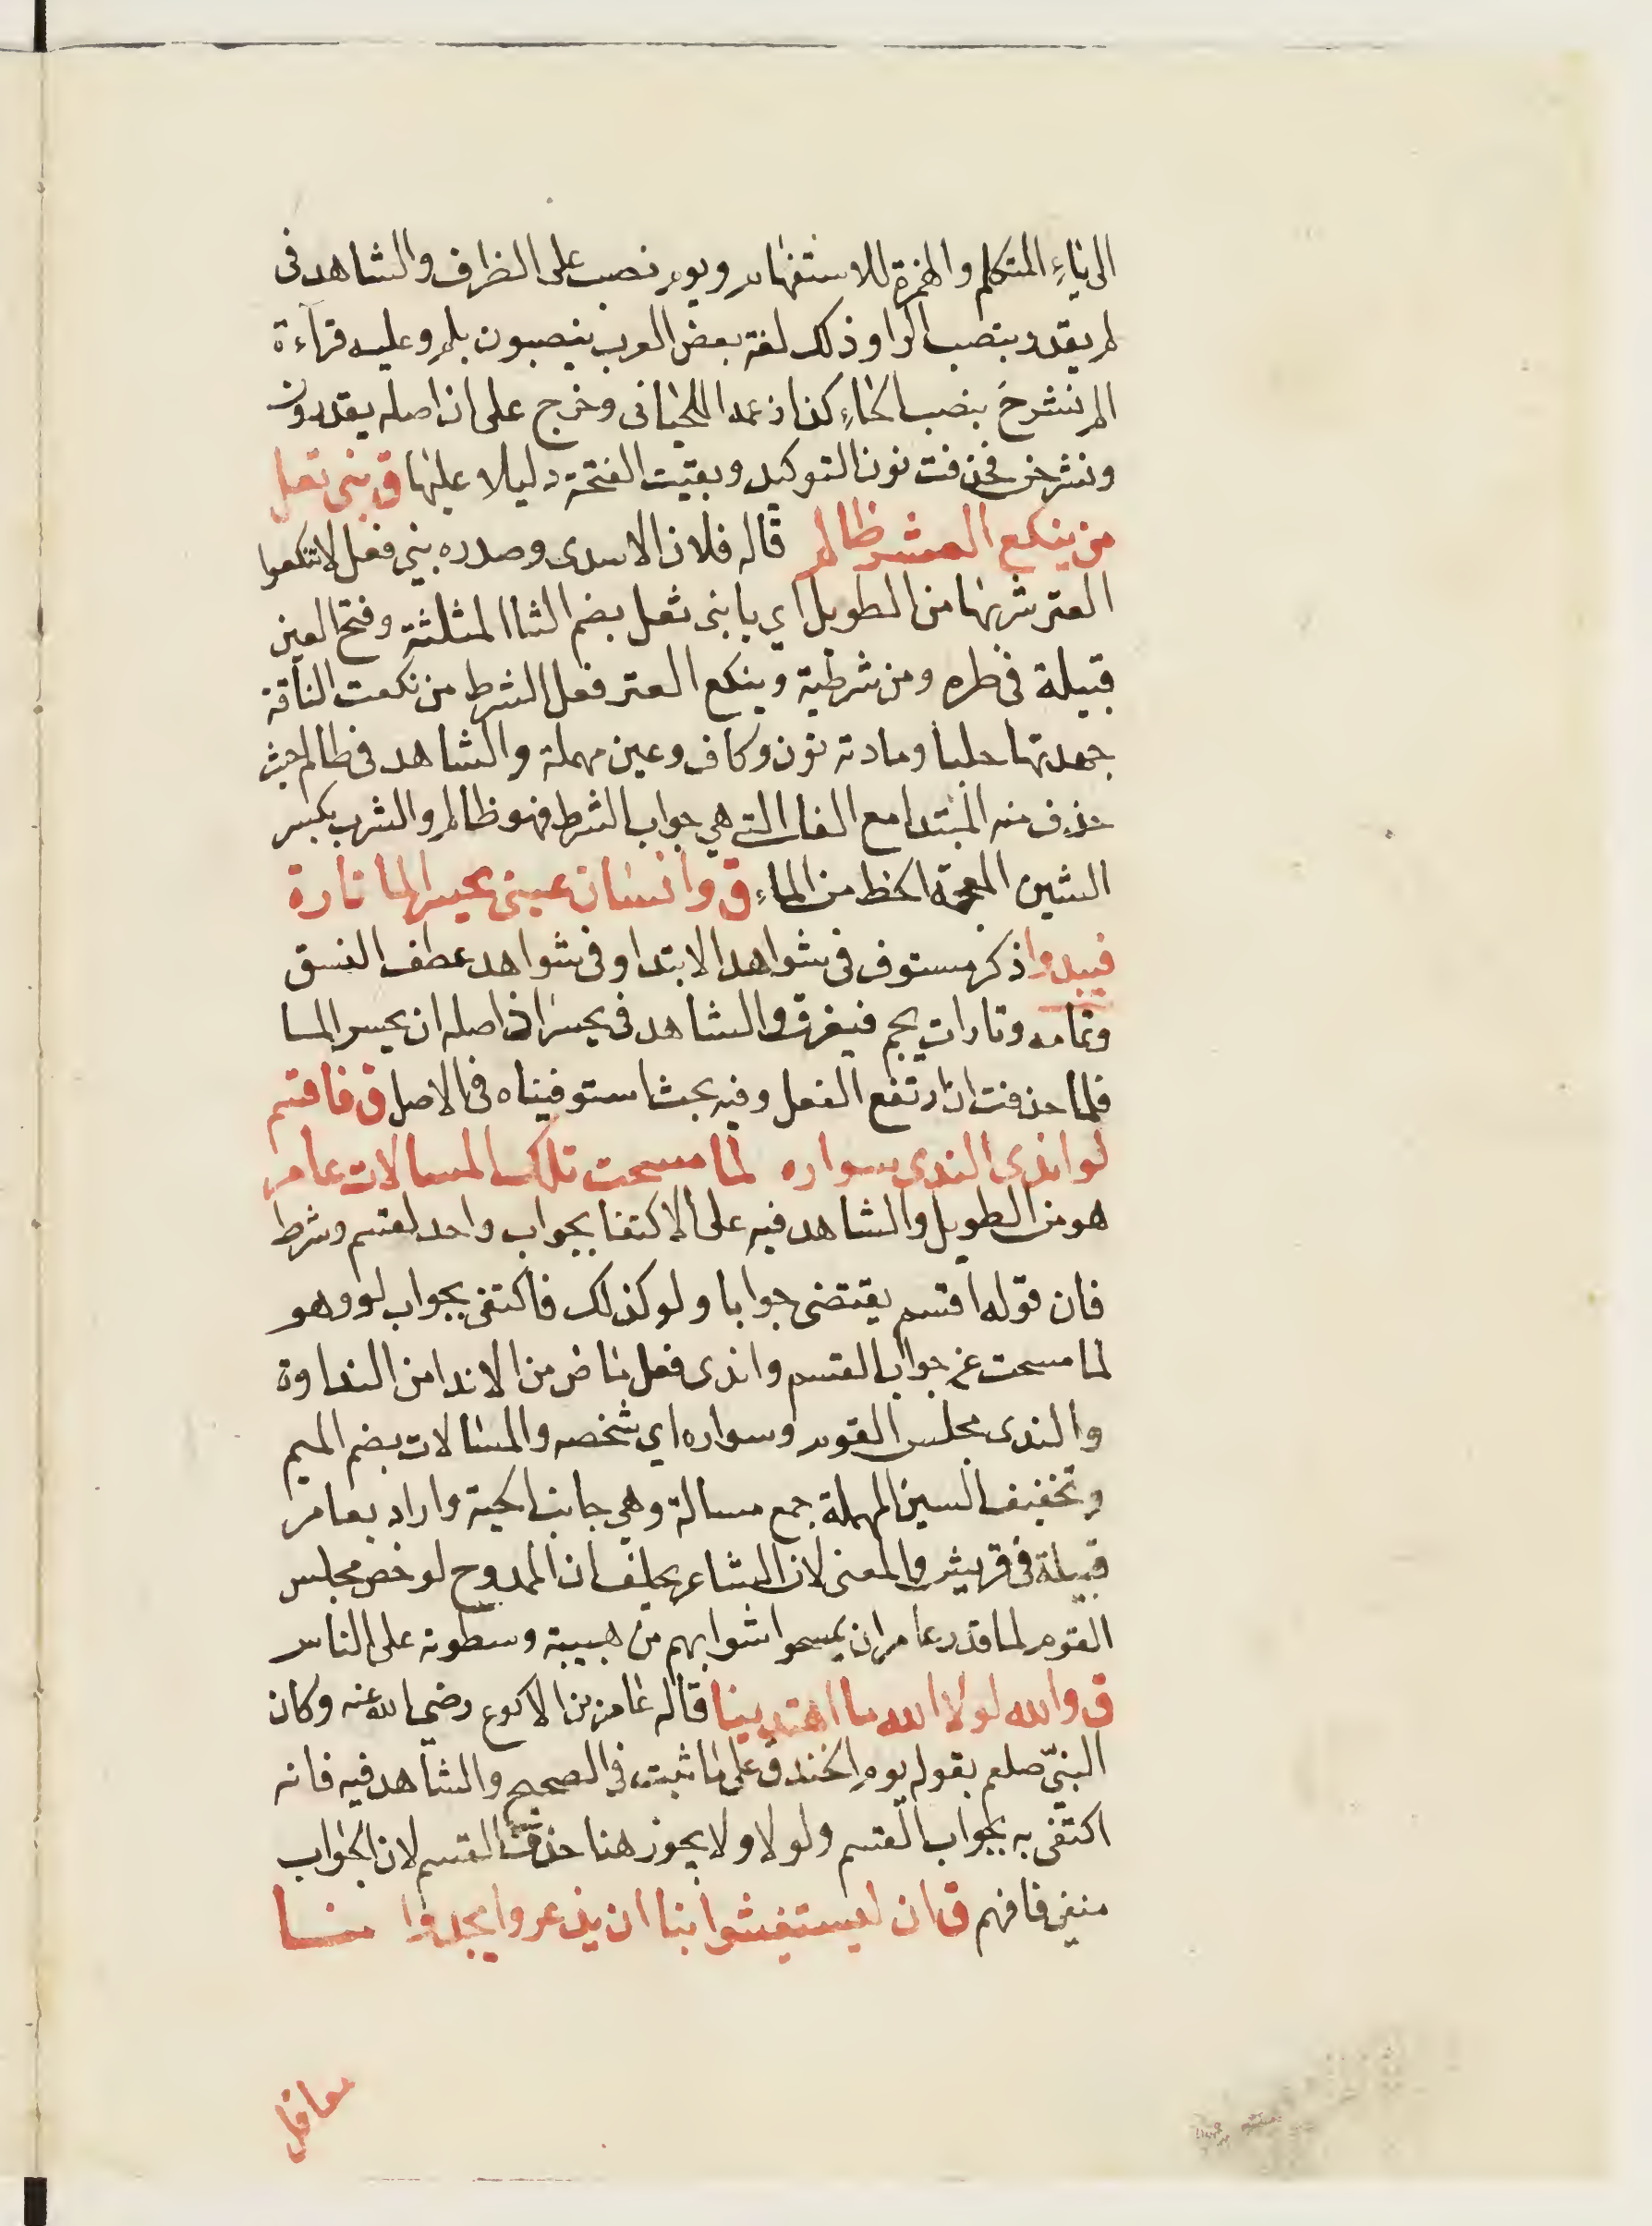 الى ياء المتكلم والهمزة للاستفهام ويوم نصب على الظرف والشاهد فى
لم يقدر بنصب الرا وذلك لغة بعض العرب ينصبون بلم وعليه قراءة
الم نشرح بنصب الحاء كذا زعمه اللحيانى وخرج على ان اصله يقدرون
ونشرحن فحذفت نون التوكيد وبقيت الفتحة دليلا عليها ق بنى ثعل
من ينكع العنز ظالم قاله فلان الاسدى وصدره بنى ثعل لا تنكعوا
العنز شربها من الطويل اي يا بنى ثعل بضم الثا المثلثة وفتح العين
قبيلة فى طره ومن شرطية وينكع العنز فعل الشرط من نكعت الناقة
جهدتها حلبا ومادته نون وكاف وعين مهملة والشاهد فى ظالم حيث
حذف منه المبتدا مع الفا التى هي جواب الشرط فهو ظالم والشرب بكسر
الشين المعجمة الحظ من الماء ق وانسان عينى يحسر الما تارة
فيبدوا ذكر مستوف فى شواهد الابتدا وفى شواهد عطف النسق
وتمامه وتارات يجم فيغرق والشاهد فى يحسر اذ اصله ان يحسر الما
فلما حذفت ان ارتفع الفعل وفيه بحث استوفيناه فى الاصل ق فاقسم
لو اندى الندى سواره لما مسحت تلك المسالات عامر
هو من الطويل والشاهد فيه على الاكتفا بجواب واحد لقسم وشرط
فان قوله اقسم يقتضى جوابا ولو كذلك فاكتفى بجواب لو وهو
لما مسحت عن جواب القسم واندى فعل ماض من الاندا من النداوة
والندى مجلس القوم وسواره اي شخصه والمسالات بضم الميم
وتخفيف السين المهملة جمع مسالة وهي جانب الحية واراد بعامر
قبيلة فى قريش والمعنى لان الشاعر يحلف ان الممدوح لو حضر مجلس
القوم لما قدر عامر ان يمسحوا شوابهم من هيبته وسطوته على الناس
ق والله لولا الله ما اهتدينا قاله عامر بن الاكوع رضي الله عنه وكان
النبيّ صلعم يقوله يوم الخندق على ما ثبت فى الصحيح والشاهد فيه فانه
اكتفى به بجواب القسم ولولا ولا يجوز هنا حذف القسم لان الجواب
منفى فافهم ق ان يستغيثوا بنا ان يذعروا يجدوا منا
معاقل